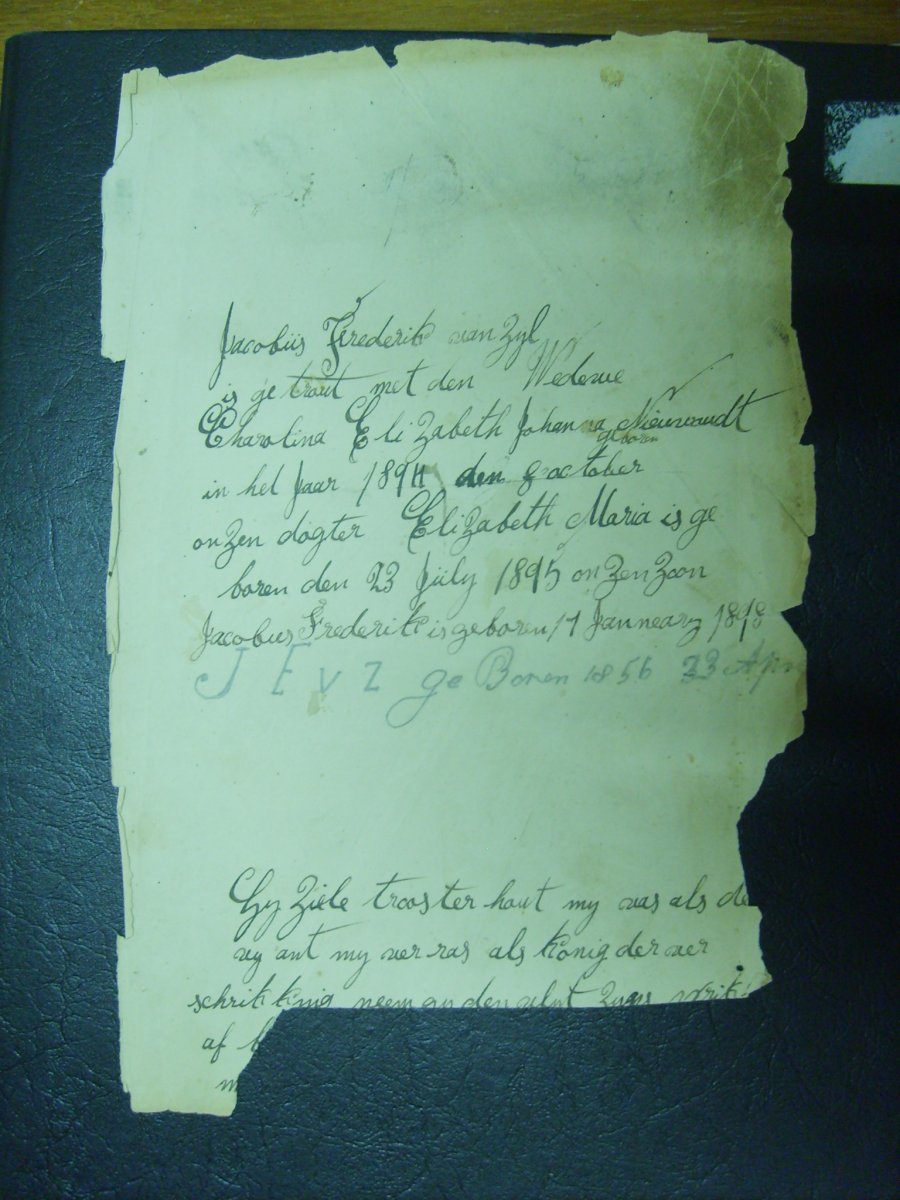 Jacobüs Frederik van Zyl
is getrout met den Wedewe
Charolina Elizabeth Johanna Nieuwoudt
geboren
in het Jaar 1894 den 8 october
onzen dogter Elizabeth Maria is ge
boren den 23 Jüily 1895 onzen Zoon
Jacobus Frederik is geboren 17 Jannearÿ 1898
J F v Z ge Boren 1856 23 Apr
Gy Ziele trooster hout my vas als de
vy ant my ver ras als konig der ver
schrik neem
af